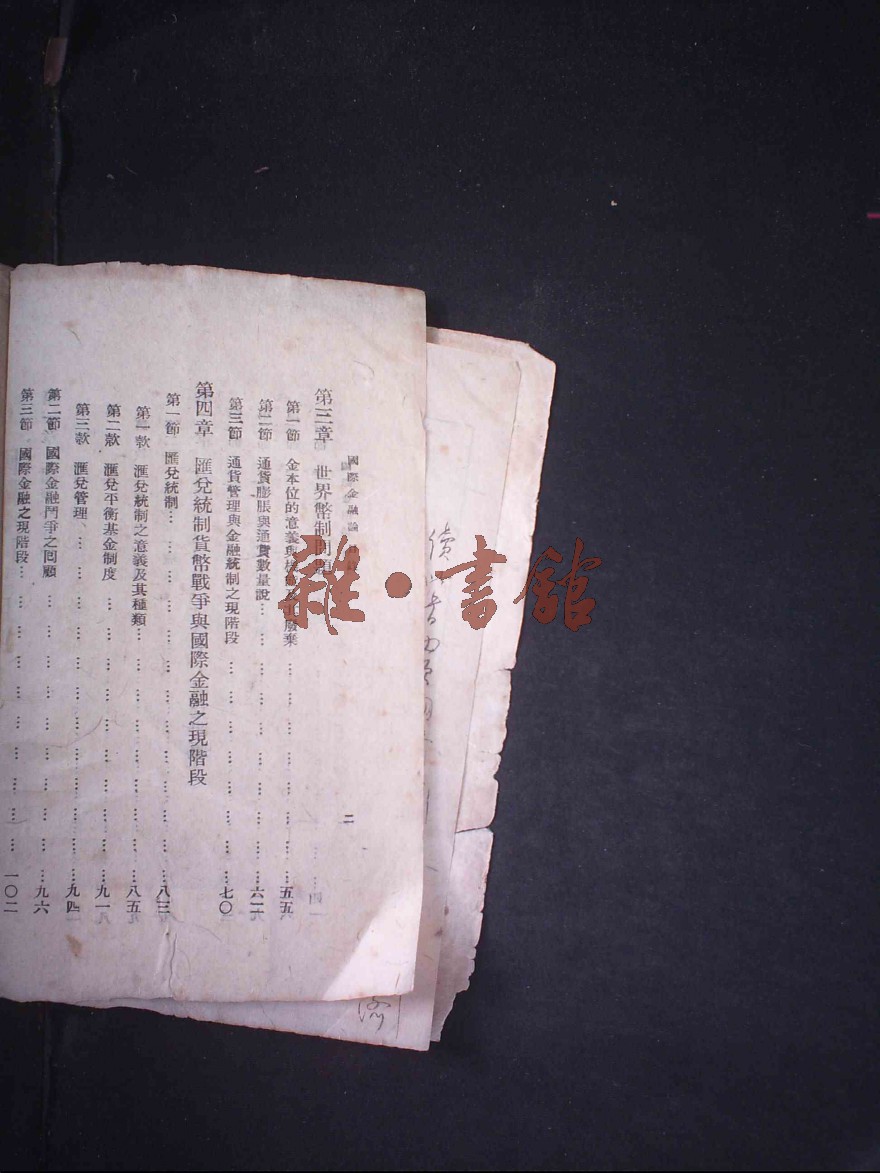 國際金融論
二
第三章 世界幣制問題
第一節 金本位的意義與 廢棄 … … … … … … … 五五
第二節 通貨膨脹與通貨數量說 … … … … … … … 六二
第三節 通貨管理與金融統制之現階段 … … … … … … 七〇
第四章 匯兌統制貨幣戰爭與國際金融之現階段
第一節 匯兌統制 … … … … … … … … … … 八三
第一款 匯兌統制之意義及其種類 … … … … … … … 八五
第二款 滙兌平衡基金制度 … … … … … … … … 九一
第三款 滙兌管理 … … … … … … … … … … 九四
第二節 國際金融鬥爭之回顧 … … … … … … … … 九六
第三節 國際金融之現階段 … … … … … … … … 一〇二
雜·書館